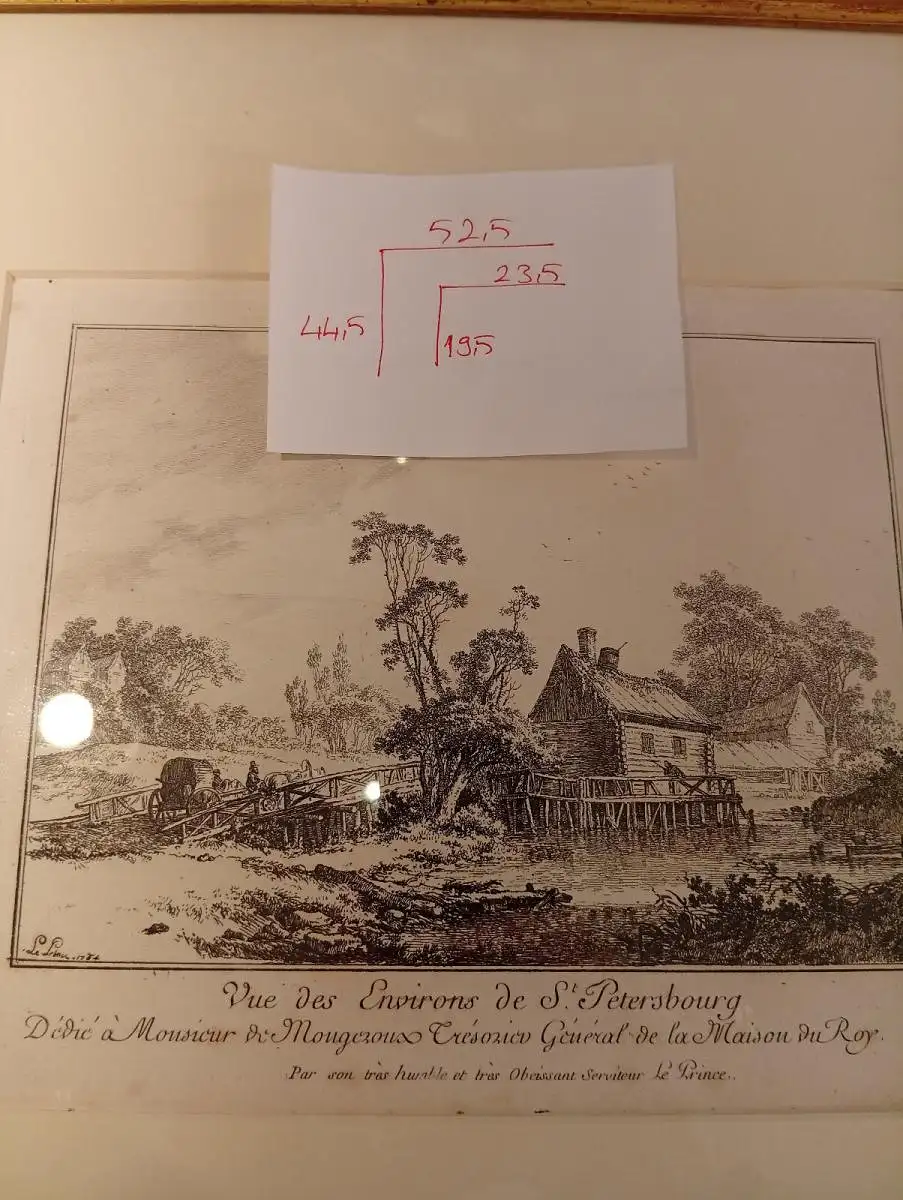 52,5
23,5
44,5
19,5
Le Prince. 1764
Vue des Environs de S.t Petersbourg
Dédié à Monsieur de Mongeroux Trésorier Général de la Maison du Roy.
Par son très humble et très Obeissant Serviteur Le Prince.